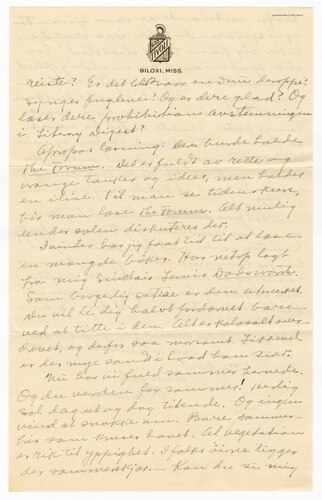 TIVOLI
BILOXI, MISS.
reiste? Er det blitt vaar en Dem deroppe?
Synger fuglene? Og er dere glad? Og
læser dere prohibition avstemningen
i Literary Digest?
Apropos læsning. Dere burde holde
The Forum. Det er fuldt av rette og
vrange tanker og ideer, men holder
en ilive. Vil man se tidens kurs,
bør man læse The Forum. Alt mulig
under solen diskuteres der.
I vinter har jeg faat tid til at læse
en mængde bøker. Har netop lagt
fra mig Sinclair Lewis Dodsworth.
Som borgerlig satire er den utmerket.
Du vil le dig halvt fordærvet bare
ved at titte i den. Alt er kolosalt over
drevet, og derfor saa morsomt. Likevel
er der mye sandt i hvad han sier.
Nu har vi fuld sommer hernede.
Og du verden for sommer! Herlig
sol dag ut og dag i. Og ingen
vind at snakke om. Bare sommer-
bris som kruser havet. Al vegetation
er rik til yppighet. I folks øine ligger
der sommerskjær. — Kan du si mig